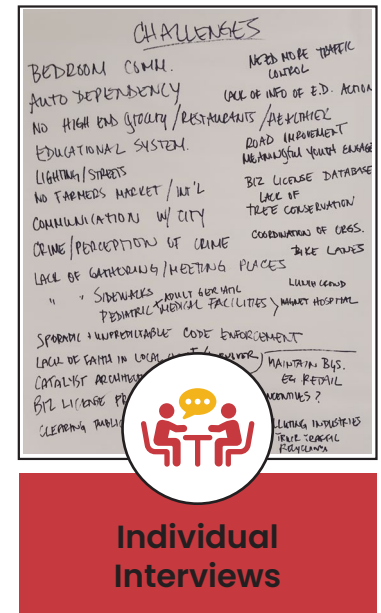 CHALLENGES
BEDROOM COMM.
AUTO DEPENDENCY
NO HIGH END GROCERY/RESTAURANTS/HEALTHIER
EDUCATIONAL SYSTEM.
LIGHTING/STREETS
NO FARMERS MARKET/INT'L
COMMUNICATION W/ CITY
CRIME/PERCEPTION OF CRIME
LACK OF GATHERING/MEETING PLACES
" " SIDEWALKS
PEDIATRIC + ADULT GERIATRIC MEDICAL FACILITIES > MAGNET HOSPITAL
SPORADIC + UNPREDICTABLE CODE ENFORCEMENT
LACK OF FAITH IN LOCAL
CATALYST
BIZ LICENSE
CLEARING PUBLIC
NEED MORE TRAFFIC
CONTROL
LACK OF INFO OF E.D. ACTION
ROAD IMPROVEMENT
MEANINGFUL YOUTH ENGAGE
BIZ LICENSE DATABASE
LACK OF
TREE CONSERVATION
COORDINATION OF ORGS.
BIKE LANES
LUNCH CROWD
MAINTAIN BGS.
EG RETAIL
INDUSTRIES
TRUCK TRAFFIC
Individual
Interviews